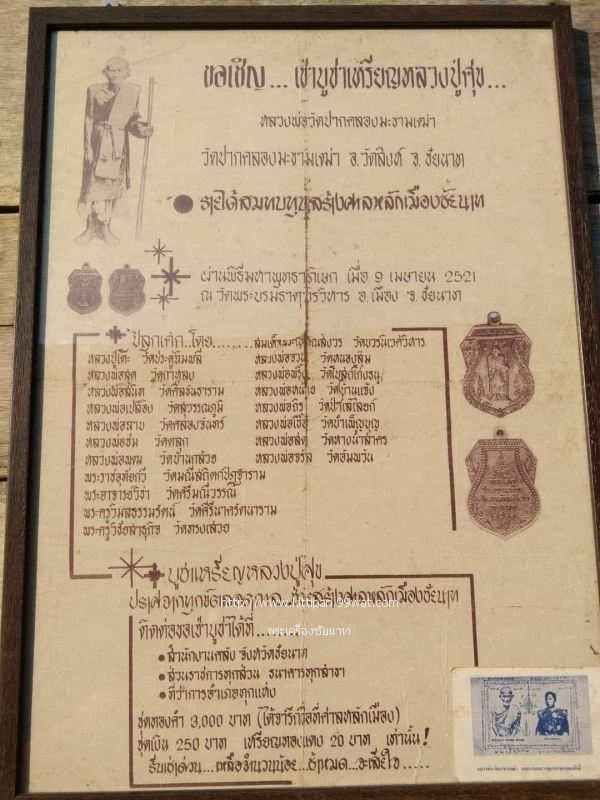 ขอเชิญ... เช่าบูชาเหรียญหลวงปู่ศุข...
หลวงพ่อวัดปากคลองมะขามเฒ่า
วัดปากคลองมะขามเฒ่า อ.วัดสิงห์ จ.ชัยนาท
รายได้สมทบทุนสร้างศาลหลักเมืองชัยนาท
ผ่านพิธีมหาพุทธาภิเษก เมื่อ ๑ เมษายน 2521
ณ วัดพระบรมธาตุวรวิหาร อ.เมือง จ.ชัยนาท
ปลุกเศก.โดย........สมเด็จพระญาณสังวร วัดบวรนิเวศวิหาร
หลวงปู่โต๊ะ วัดประดู่ฉิมพลี
หลวงพ่อกวย วัดหนองอีดุก
หลวงพ่อสุด วัดกาหลง
หลวงพ่อสนิท วัดศีลขันธาราม
หลวงพ่อหน่าย วัดบ้านแจ้ง
หลวงพ่อเปลื้อง วัดสุวรรณภูมิ
หลวงพ่อถิร วัดป่าเลไลยก์
วัดคลองจันทร์
วัดบำเพ็ญบุญ
หลวงพ่อ วัดตลุก
วัดหางน้ำสาคร
หลวงพ่อพรหม วัดบ้านกล้วย
หลวงพ่อจรัล วัดอัมพวัน
พระราชอุทัยกวี วัดมณีสถิตกปิฏฐาราม
พระอาจารย์วิชา วัดศรีมณีวรรณ์
พระครูวิมลธรรมรัตน์
พระครูวิชัยสาธุกิจ วัดทรงเสวย
บูชาเหรียญหลวงปู่ศุข
ช่วยสร้างศาลหลักเมืองชัยนาท
http://www.littipan.99wat.com
ติดต่อขอเช่าบูชาได้ที่.........
พระเครื่องชัยนาท
สำนักงานคลัง จังหวัดชัยนาท
ส่วนราชการทุกส่วน ธนาคารทุกสาขา
ที่ว่าการอำเภอทุกแห่ง
ชุดทองคำ 9,000 บาท (ได้จารึกชื่อที่ศาลหลักเมือง)
ชุดเงิน 250 บาท เหรียญทองแดง 20 บาท เท่านั้น!
รีบเช่าด่วน...เหลือจำนวนน้อย...ช้าหมด...จะเสียใจ.....